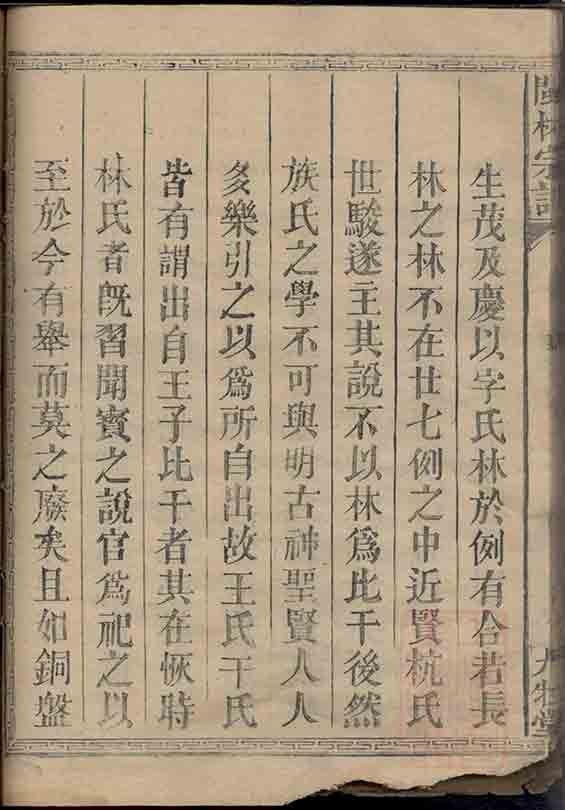 閩林宗譜
生茂及慶以字氏林於例有合若長
林之林不在廿七例之中近賢杭氏
世駿遂主其說不以林為比干後然
族氏之學不可與明古神聖賢人人
多樂引之以為所自出故王氏干氏
皆有謂出自王子比干者其在恢時
林氏者既習聞賓之說官為祀之以
至於今有舉而莫之廢矣且如銅盤